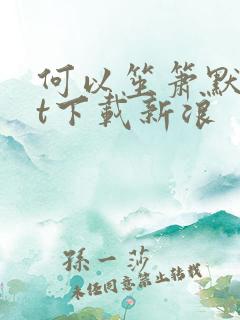 何以笙箫默
t下载新浪
孫一莎
未经同意禁止转载